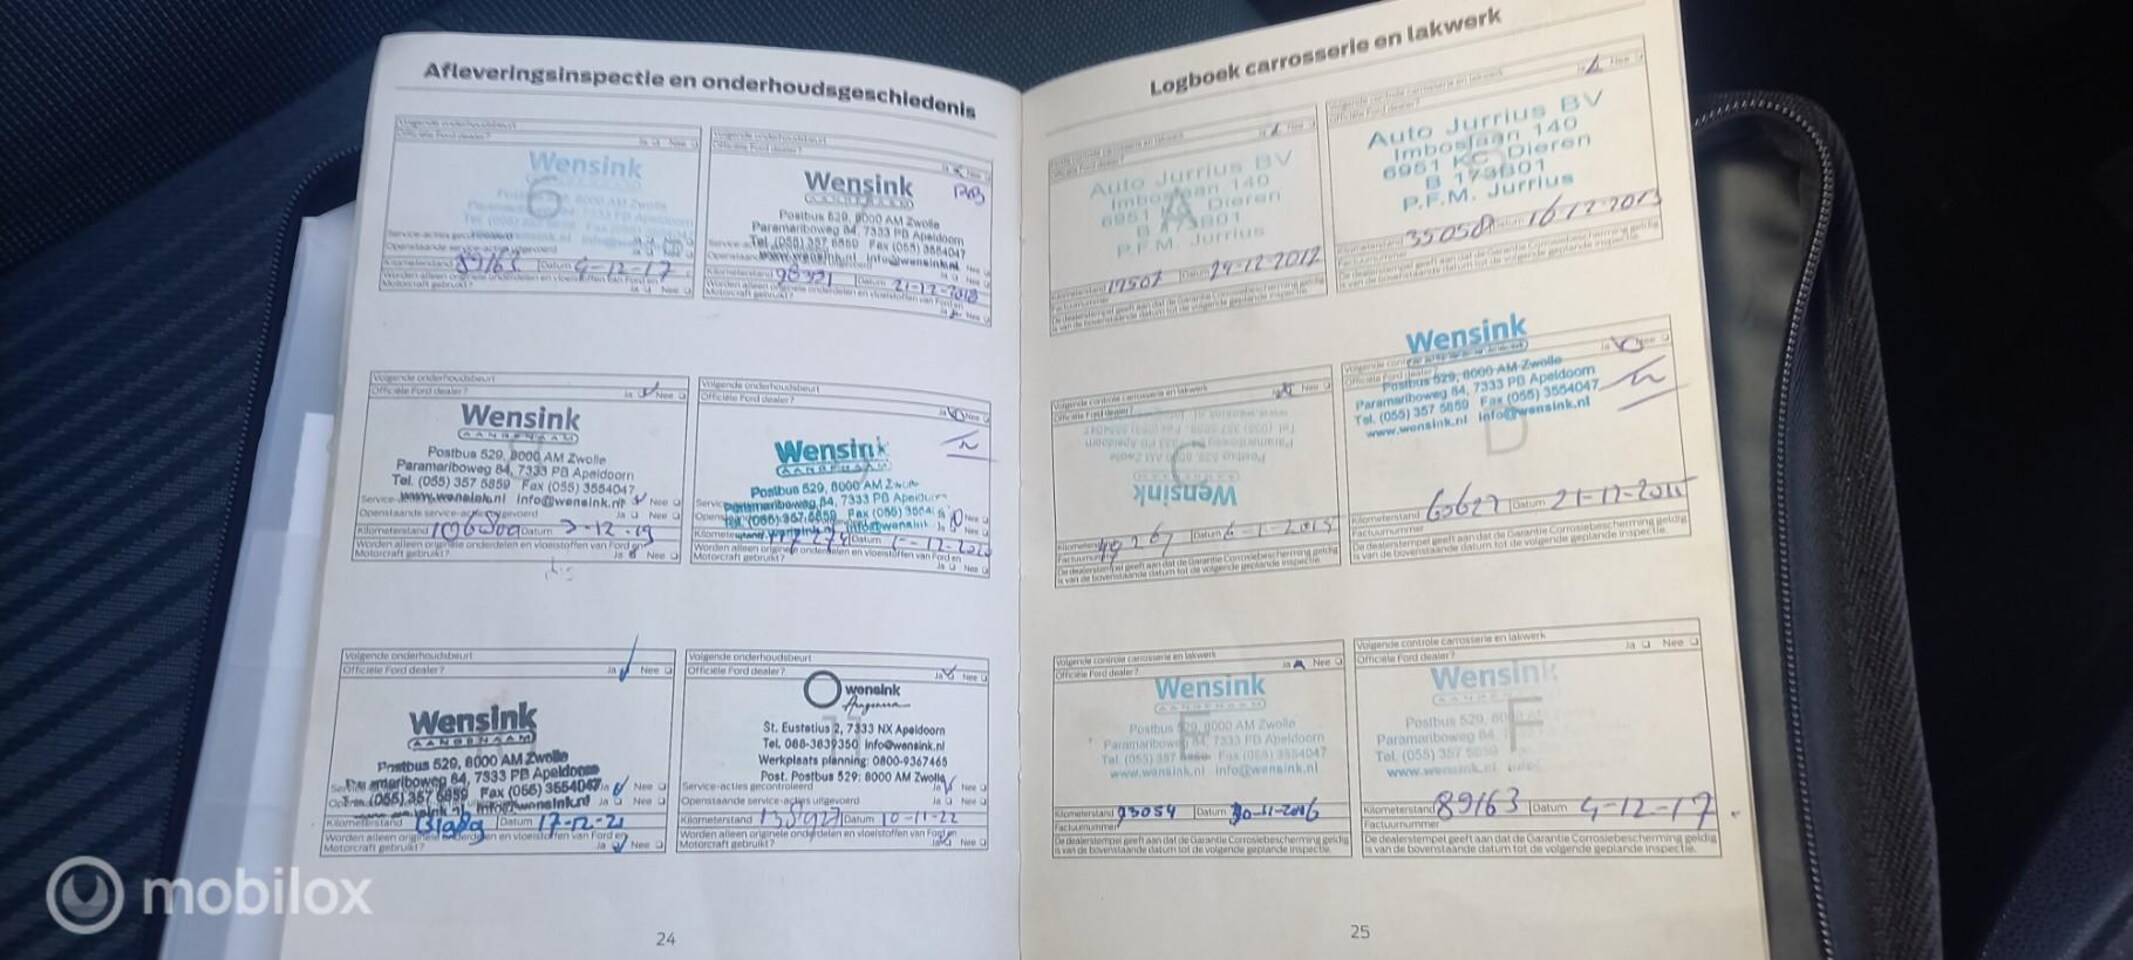 Afleveringsinspectie en onderhoudsgeschiedenis
Volgende onderhoudsbeurt
Officiële Ford dealer?
Ja Nee
Wensink
6
Service-acties gecontroleerd
Openstaande service-acties uitgevoerd
Kilometerstand 89163 Datum 4-12-17
Worden alleen originele onderdelen en vloeistoffen van Ford en
Motorcraft gebruikt?
Volgende onderhoudsbeurt
Officiële Ford dealer?
Ja Nee
Wensink
Postbus 529, 8000 AM Zwolle
Paramariboweg 84, 7333 PB Apeldoorn
Tel. (055) 357 5859 Fax (055) 3554047
www.wensink.nl info@wensink.nl
Kilometerstand Datum 21-12-2018
Worden alleen originele onderdelen en vloeistoffen van Ford en
Motorcraft gebruikt?
Ja Nee
Volgende onderhoudsbeurt
Officiële Ford dealer?
Ja Nee
Wensink
AANGENAAM
Postbus 529, 8000 AM Zwolle
Paramariboweg 84, 7333 PB Apeldoorn
Tel. (055) 357 5859 Fax (055) 3554047
www.wensink.nl info@wensink.nl
Nee
Openstaande service-acties uitgevoerd Ja Nee
Kilometerstand Datum 3-12-19
Worden alleen originele onderdelen en vloeistoffen van Ford en
Motorcraft gebruikt? Ja Nee
Volgende onderhoudsbeurt
Officiële Ford dealer?
Ja Nee
Wensink
AANGENAAM
Postbus 529, 8000 AM Zwolle
Paramariboweg 84, 7333 PB Apeldoorn
Tel. (055) 357 5859 Fax (055)
Datum
Worden alleen originele onderdelen en vloeistoffen van Ford en
Motorcraft gebruikt? Ja Nee
Volgende onderhoudsbeurt
Officiële Ford dealer? Ja Nee
Wensink
AANGENAAM
Postbus 529, 8000 AM Zwolle
Paramariboweg 84, 7333 PB Apeldoorn
Tel. (055) 357 5859 Fax (055) 3554047
info@wensink.nl
Kilometerstand Datum 17-12-21
Worden alleen originele onderdelen en vloeistoffen van Ford en
Motorcraft gebruikt? Ja Nee
Volgende onderhoudsbeurt
Officiële Ford dealer? Ja Nee
wensink
Aangenaam
St. Eustatius 2, 7333 NX Apeldoorn
Tel. 088-3639350 info@wensink.nl
Werkplaats planning: 0800-9367465
Post. Postbus 529: 8000 AM Zwolle
Service-acties gecontroleerd Ja Nee
Openstaande service-acties uitgevoerd Ja Nee
Kilometerstand Datum 10-11-22
Worden alleen originele onderdelen en vloeistoffen van Ford en
Motorcraft gebruikt? Ja Nee
24
Logboek carrosserie en lakwerk
Auto Jurrius BV
Imboslaan 140
6951 Dieren
B 173B01
P.F.M. Jurrius
A
Kilometerstand 17507 Datum 24-12-2012
Factuurnummer
De dealerstempel geeft aan dat de Garantie Corrosiebescherming geldig
is van de bovenstaande datum tot de volgende geplande inspectie.
Volgende controle carrosserie en lakwerk
Officiële Ford dealer?
Auto Jurrius BV
Imboslaan 140
6951 KC Dieren
B 173B01
P.F.M. Jurrius
Kilometerstand 35058 Datum 16-12-2013
Factuurnummer
De dealerstempel geeft aan dat de Garantie Corrosiebescherming geldig
is van de bovenstaande datum tot de volgende geplande inspectie.
Volgende controle carrosserie en lakwerk
Officiële Ford dealer?
Nee
C
Wensink
Kilometerstand 49267 Datum 6-1-2015
Factuurnummer
De dealerstempel geeft aan dat de Garantie Corrosiebescherming geldig
is van de bovenstaande datum tot de volgende geplande inspectie.
Wensink
Postbus 529, 8000 AM Zwolle
Paramariboweg 84, 7333 PB Apeldoorn
Tel. (055) 357 5859 Fax (055) 3554047
www.wensink.nl info@wensink.nl
D
Kilometerstand 60627 Datum 21-12-2015
Factuurnummer
De dealerstempel geeft aan dat de Garantie Corrosiebescherming geldig
is van de bovenstaande datum tot de volgende geplande inspectie.
Volgende controle carrosserie en lakwerk
Officiële Ford dealer? Ja Nee
Wensink
AANGENAAM
E
Postbus 529, 8000 AM Zwolle
Paramariboweg 84, 7333 PB Apeldoorn
Tel. (055) 357 5859 Fax (055) 3554047
www.wensink.nl info@wensink.nl
Kilometerstand Datum 30-11-2016
Factuurnummer
De dealerstempel geeft aan dat de Garantie Corrosiebescherming geldig
is van de bovenstaande datum tot de volgende geplande inspectie.
Volgende controle carrosserie en lakwerk
Officiële Ford dealer? Ja Nee
Wensink
AANGENAAM
F
Postbus 529,
Paramariboweg 84,
Tel. (055) 357 5859
www.wensink.nl
Kilometerstand 89163 Datum 4-12-17
Factuurnummer
De dealerstempel geeft aan dat de Garantie Corrosiebescherming geldig
is van de bovenstaande datum tot de volgende geplande inspectie.
25
mobilox